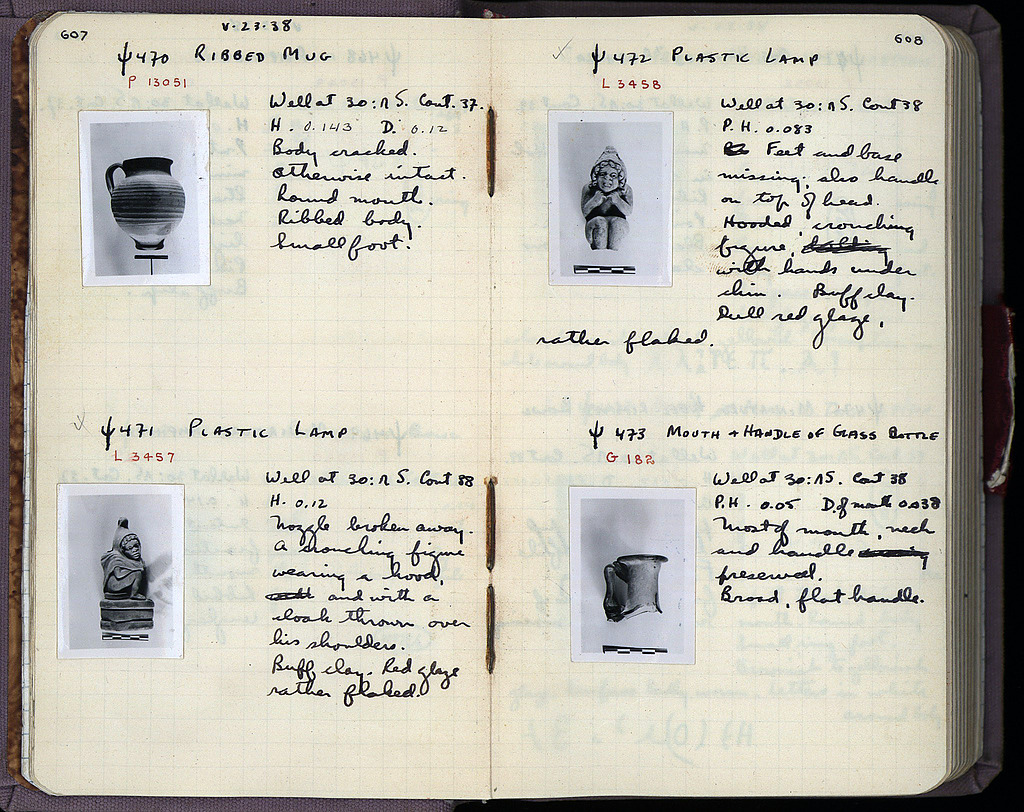 607
V·23·38
ψ470 RIBBED MUG
P 13051
Well at 30:ΛS. Cont. 37.
H. 0.143 D. 0.12
Body cracked.
Otherwise intact.
Round mouth.
Ribbed body.
Small foot.
ψ471 PLASTIC LAMP
L 3457
Well at 30:ΛS. Cont 38
H. 0.12
Nozzle broken away.
A crouching figure
wearing a hood,
and with a
cloak thrown over
his shoulders.
Buff clay. Red glaze
rather flaked.
608
ψ472 PLASTIC LAMP
L 3458
Well at 30:ΛS. Cont 38
P.H. 0.083
Feet and base
missing; also handle
on top of head.
Hooded, crouching
figure,
with hands under
chin. Buff clay.
Dull red glaze,
rather flaked.
ψ 473 MOUTH + HANDLE OF GLASS BOTTLE
G 182
Well at 30:ΛS. Cont 38
P.H. 0.05 D. of mouth 0.038
Most of mouth, neck
and handle
preserved.
Broad, flat handle.